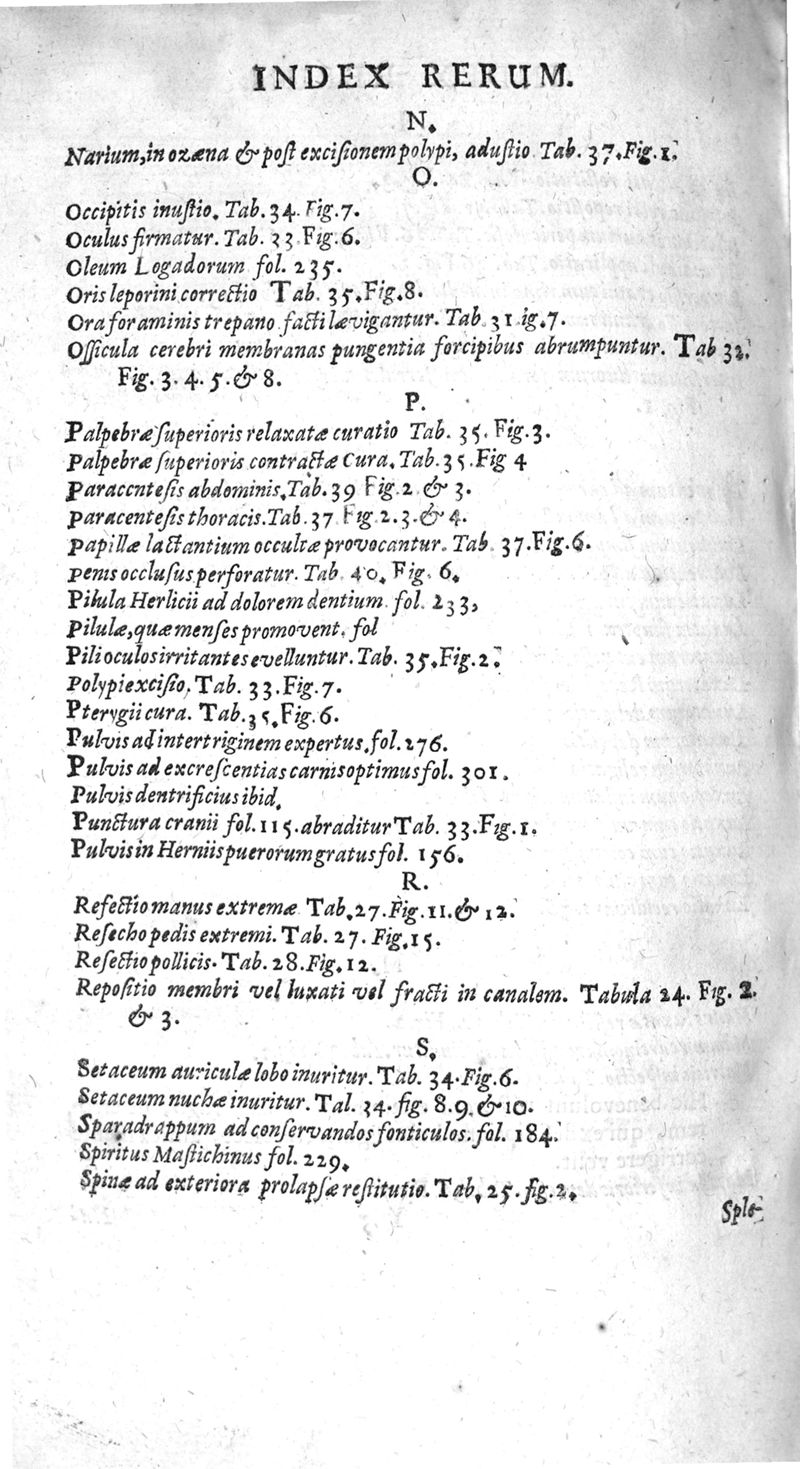 INDEX RERUM.
N.
Narium, in ozæna & poſt exciſionem polypi, aduſtio. Tab. 37. Fig. 1.
O.
Occipitis inuſtio. Tab. 34. Fig. 7.
Oculus firmatur. Tab. 33. Fig. 6.
Oleum Logadorum fol. 235.
Oris leporini correctio Tab. 35. Fig. 8.
Ora foraminis trepano facti lævigantur. Tab. 31 ig. 7.
Oſſicula cerebri membranas pungentia forcipibus abrumpuntur. Tab 32.
Fig. 3. 4. 5. & 8.
P.
Palpebræ ſuperioris relaxatæ curatio Tab. 35. Fig. 3.
Palpebræ ſuperioris contractæ Cura. Tab. 35. Fig 4
Paracenteſis abdominis. Tab. 39 Fig. 2 & 3.
paracenteſis thoracis. Tab. 37 Fig. 2. 3. & 4.
Papillæ lactantium occultæ provocantur. Tab. 37. Fig. 6.
penis occluſus perforatur. Tab. 40. Fig. 6.
Pilula Herlicii ad dolorem dentium. fol. 233,
Pilulæ, quæ menſes promovent. fol
Pili oculos irritantes evelluntur. Tab. 35. Fig. 2.
Polypi exciſio. Tab. 33. Fig. 7.
Pterygii cura. Tab. 35. Fig. 6.
Pulvis ad intertriginem expertus. fol. 276.
Pulvis ad excreſcentias carnis optimus fol. 301.
Pulvis dentrificius ibid.
Punctura cranii fol. 115. abraditur Tab. 33. Fig. 1.
Pulvis in Herniis puerorum gratus fol. 156.
R.
Reſectio manus extremæ Tab. 27. Fig. 11. & 12.
Reſechо pedis extremi. Tab. 27. Fig. 15.
Reſectio pollicis. Tab. 28. Fig. 12.
Repoſitio membri vel luxati vel fracti in canalem. Tabula 24. Fig. 2.
& 3.
S.
Setaceum auriculæ lobo inuritur. Tab. 34. Fig. 6.
Setaceum nuchæ inuritur. Tal. 34. fig. 8. 9. & 10.
Sparadrappum ad conſervandos fonticulos. fol. 184.
Spiritus Maſtichinus fol. 229.
Spinæ ad exteriora prolapſæ reſtitutio. Tab. 25. fig. 2.
Sple-